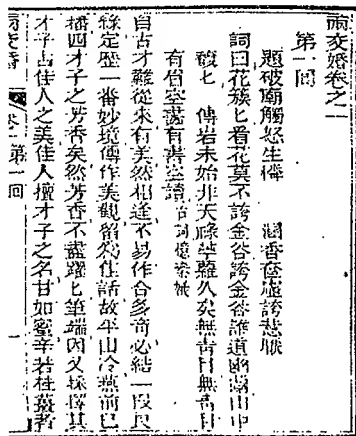 兩交婚卷之一
第一回
題破廟觸怒生 香奩虛誇慧眼
詞曰花簇七看花莫不誇金谷誇金谷誰道幽山中
馥七 傅岩未始非天祿苧蘿久矣無青目無青目
有眉空畫有書空讀 右調憶秦娥
自古才難從來有美然相逢不易作合多奇必結一段良
緣定歷一番妙境傳作美觀留為佳話故平山冷燕前已
播四才子之芳香矣然芳香不盡躍七筆端因又採擇其
才子占佳人之美佳人擅才子之名甘如蜜辛若桂薑者
兩交婚 卷之一 第一回 一